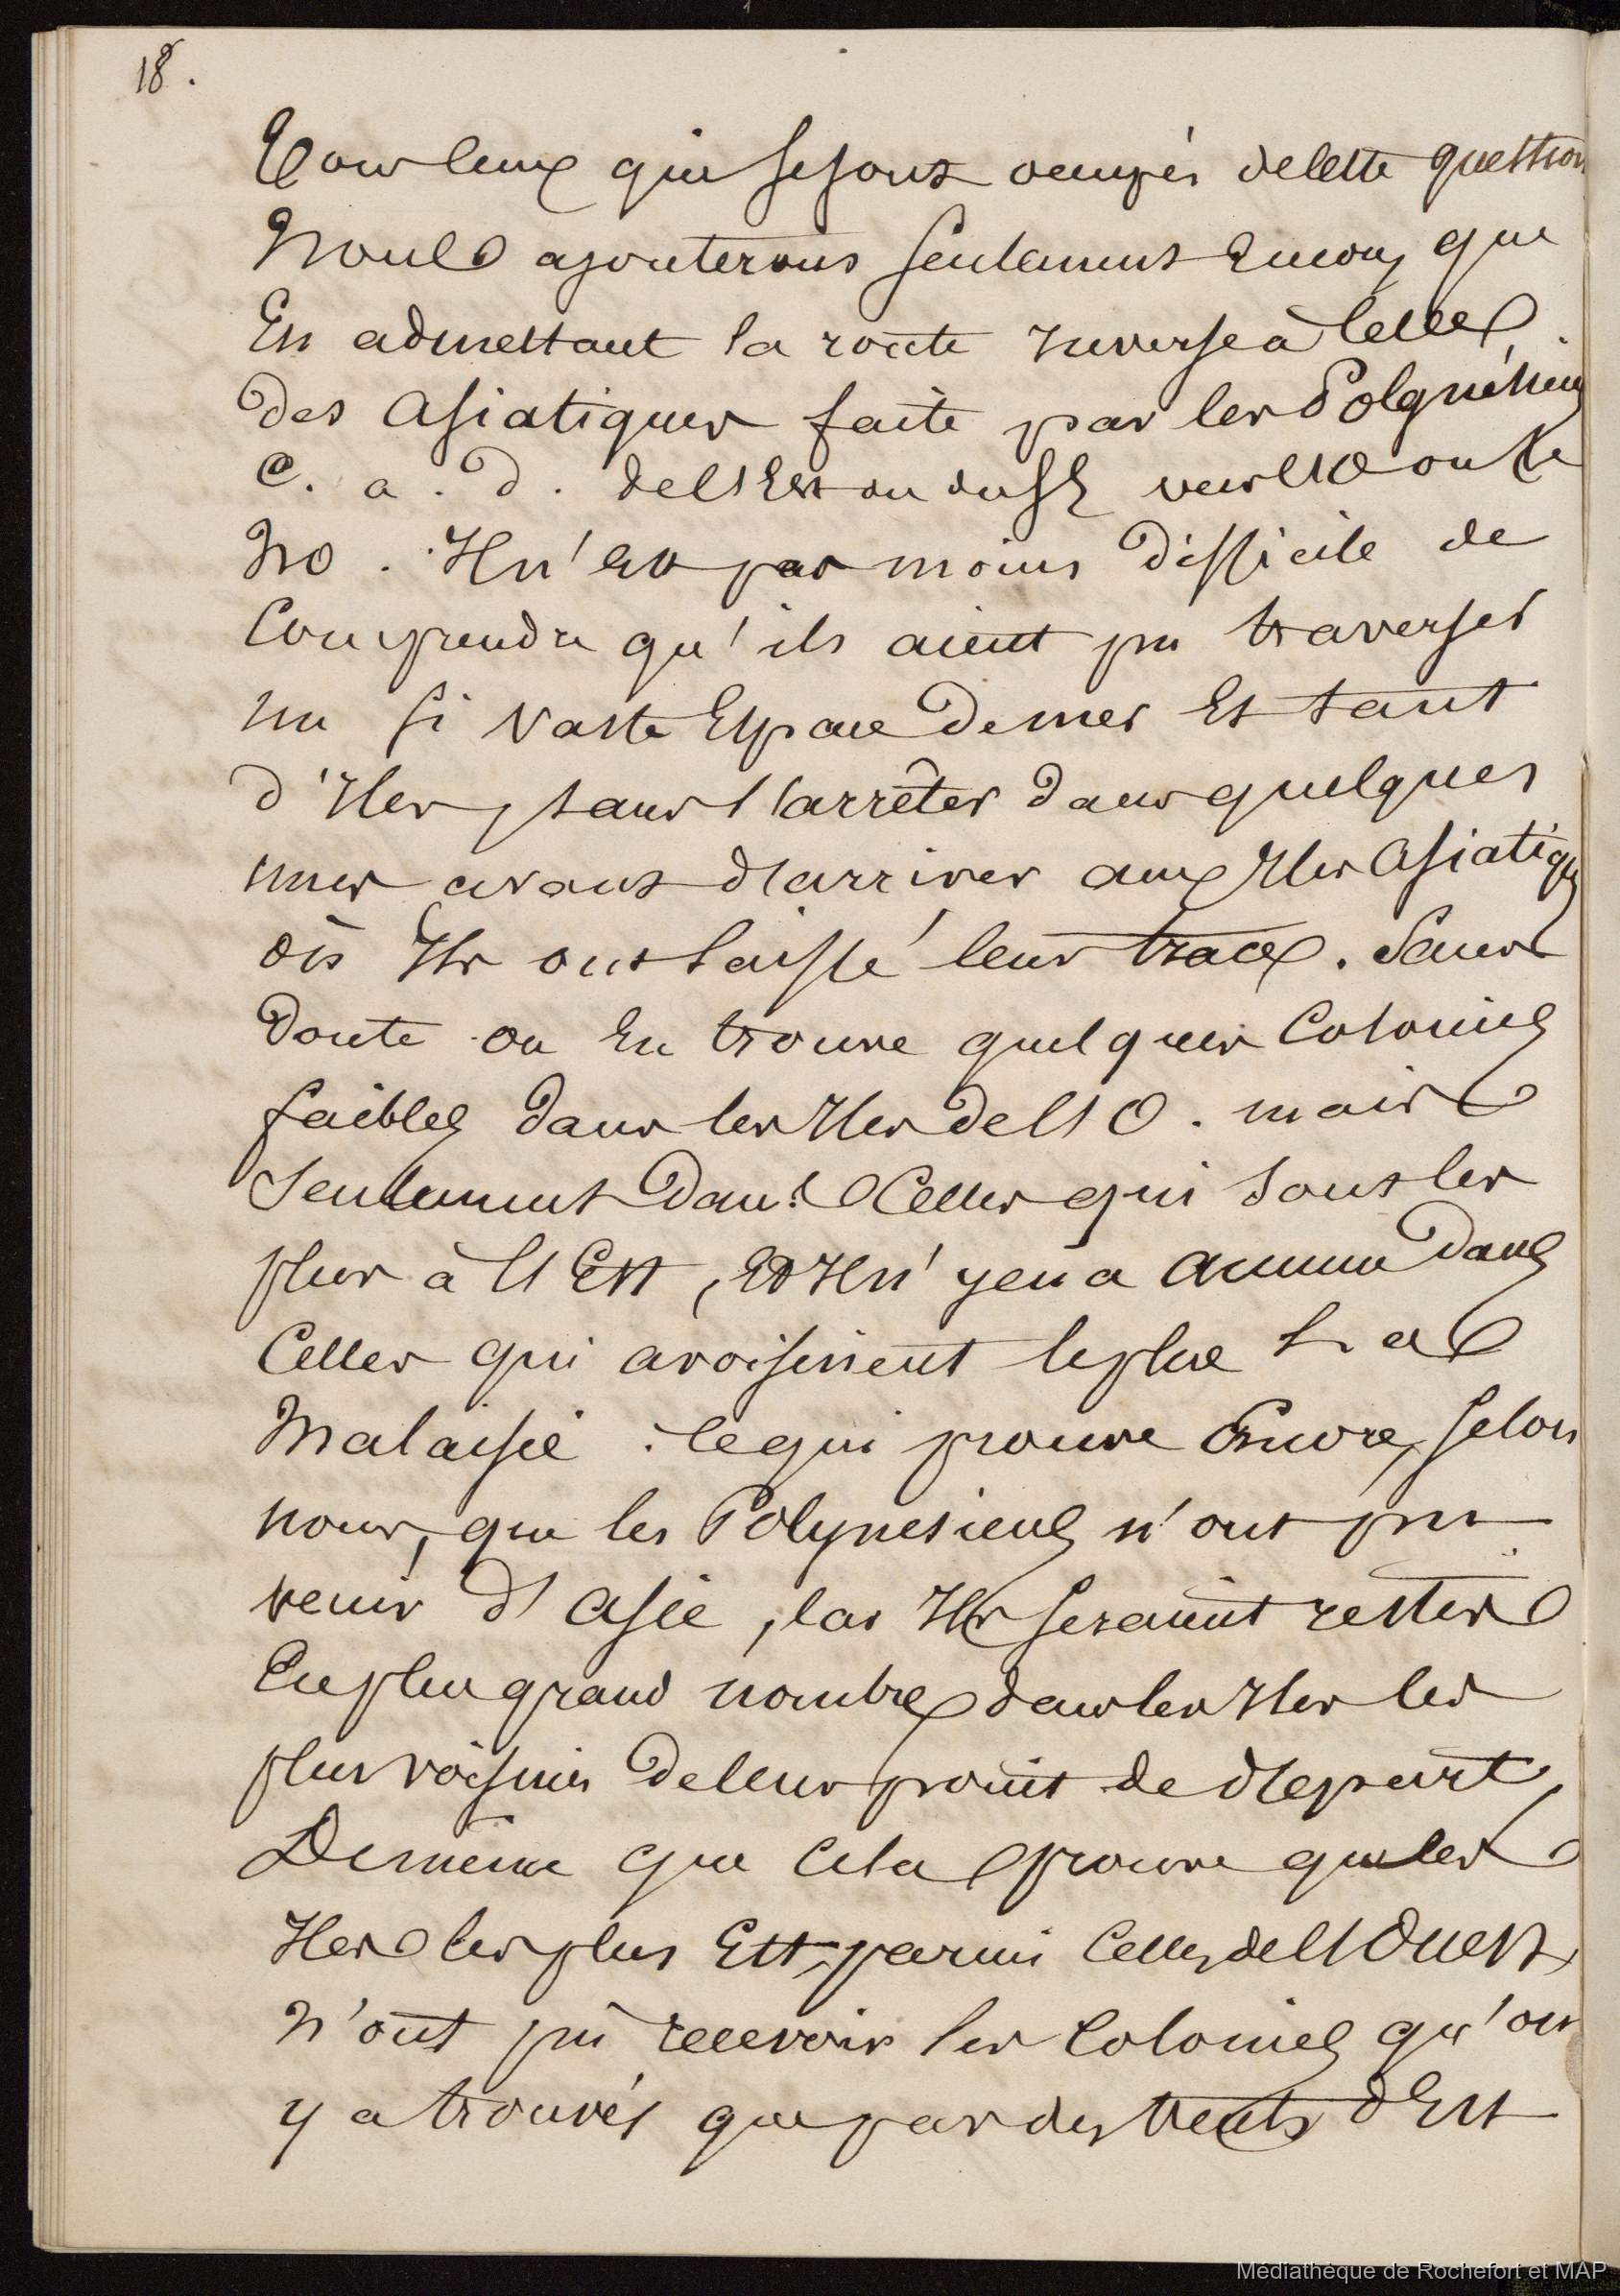 18.
Tous ceux qui se sont occupés de cette question
Nous ajouterons seulement encore, que
En admettant la route inverse à celle
des asiatiques faite par les Polynésiens
c. a. d. de l'Est ou du SE vers l'O ou le
NO. Il n'est pas moins difficile de
Comprendre qu'ils aient pu traverser
un si vaste Espace de mer et tant
d'Iles, sans s'arrêter dans quelques
unes avant d'arriver aux Iles asiatiques
où Ils ont laissé leur trace. Sans
Doute on En trouve quelques Colonies
faibles dans les Iles de l'O. mais
Seulement dans Celles qui sont les
plus à l'Est, Et Il n'y en a aucune dans
Celles qui avoisinent le plus La
Malaisie : ce qui prouve Encore, selon
nous, que les Polynesiens n'ont pu
venir d'asie, car Ils seraient restés
En plus grand nombre dans les Iles les
plus voisines de leur point de départ,
De même que Cela prouve que les
Iles les plus Est, parmi Celles de l'Ouest,
N'ont pû recevoir les Colonies qu'on
y a trouvés que par des vents d'Est
Médiathèque de Rochefort et MAP